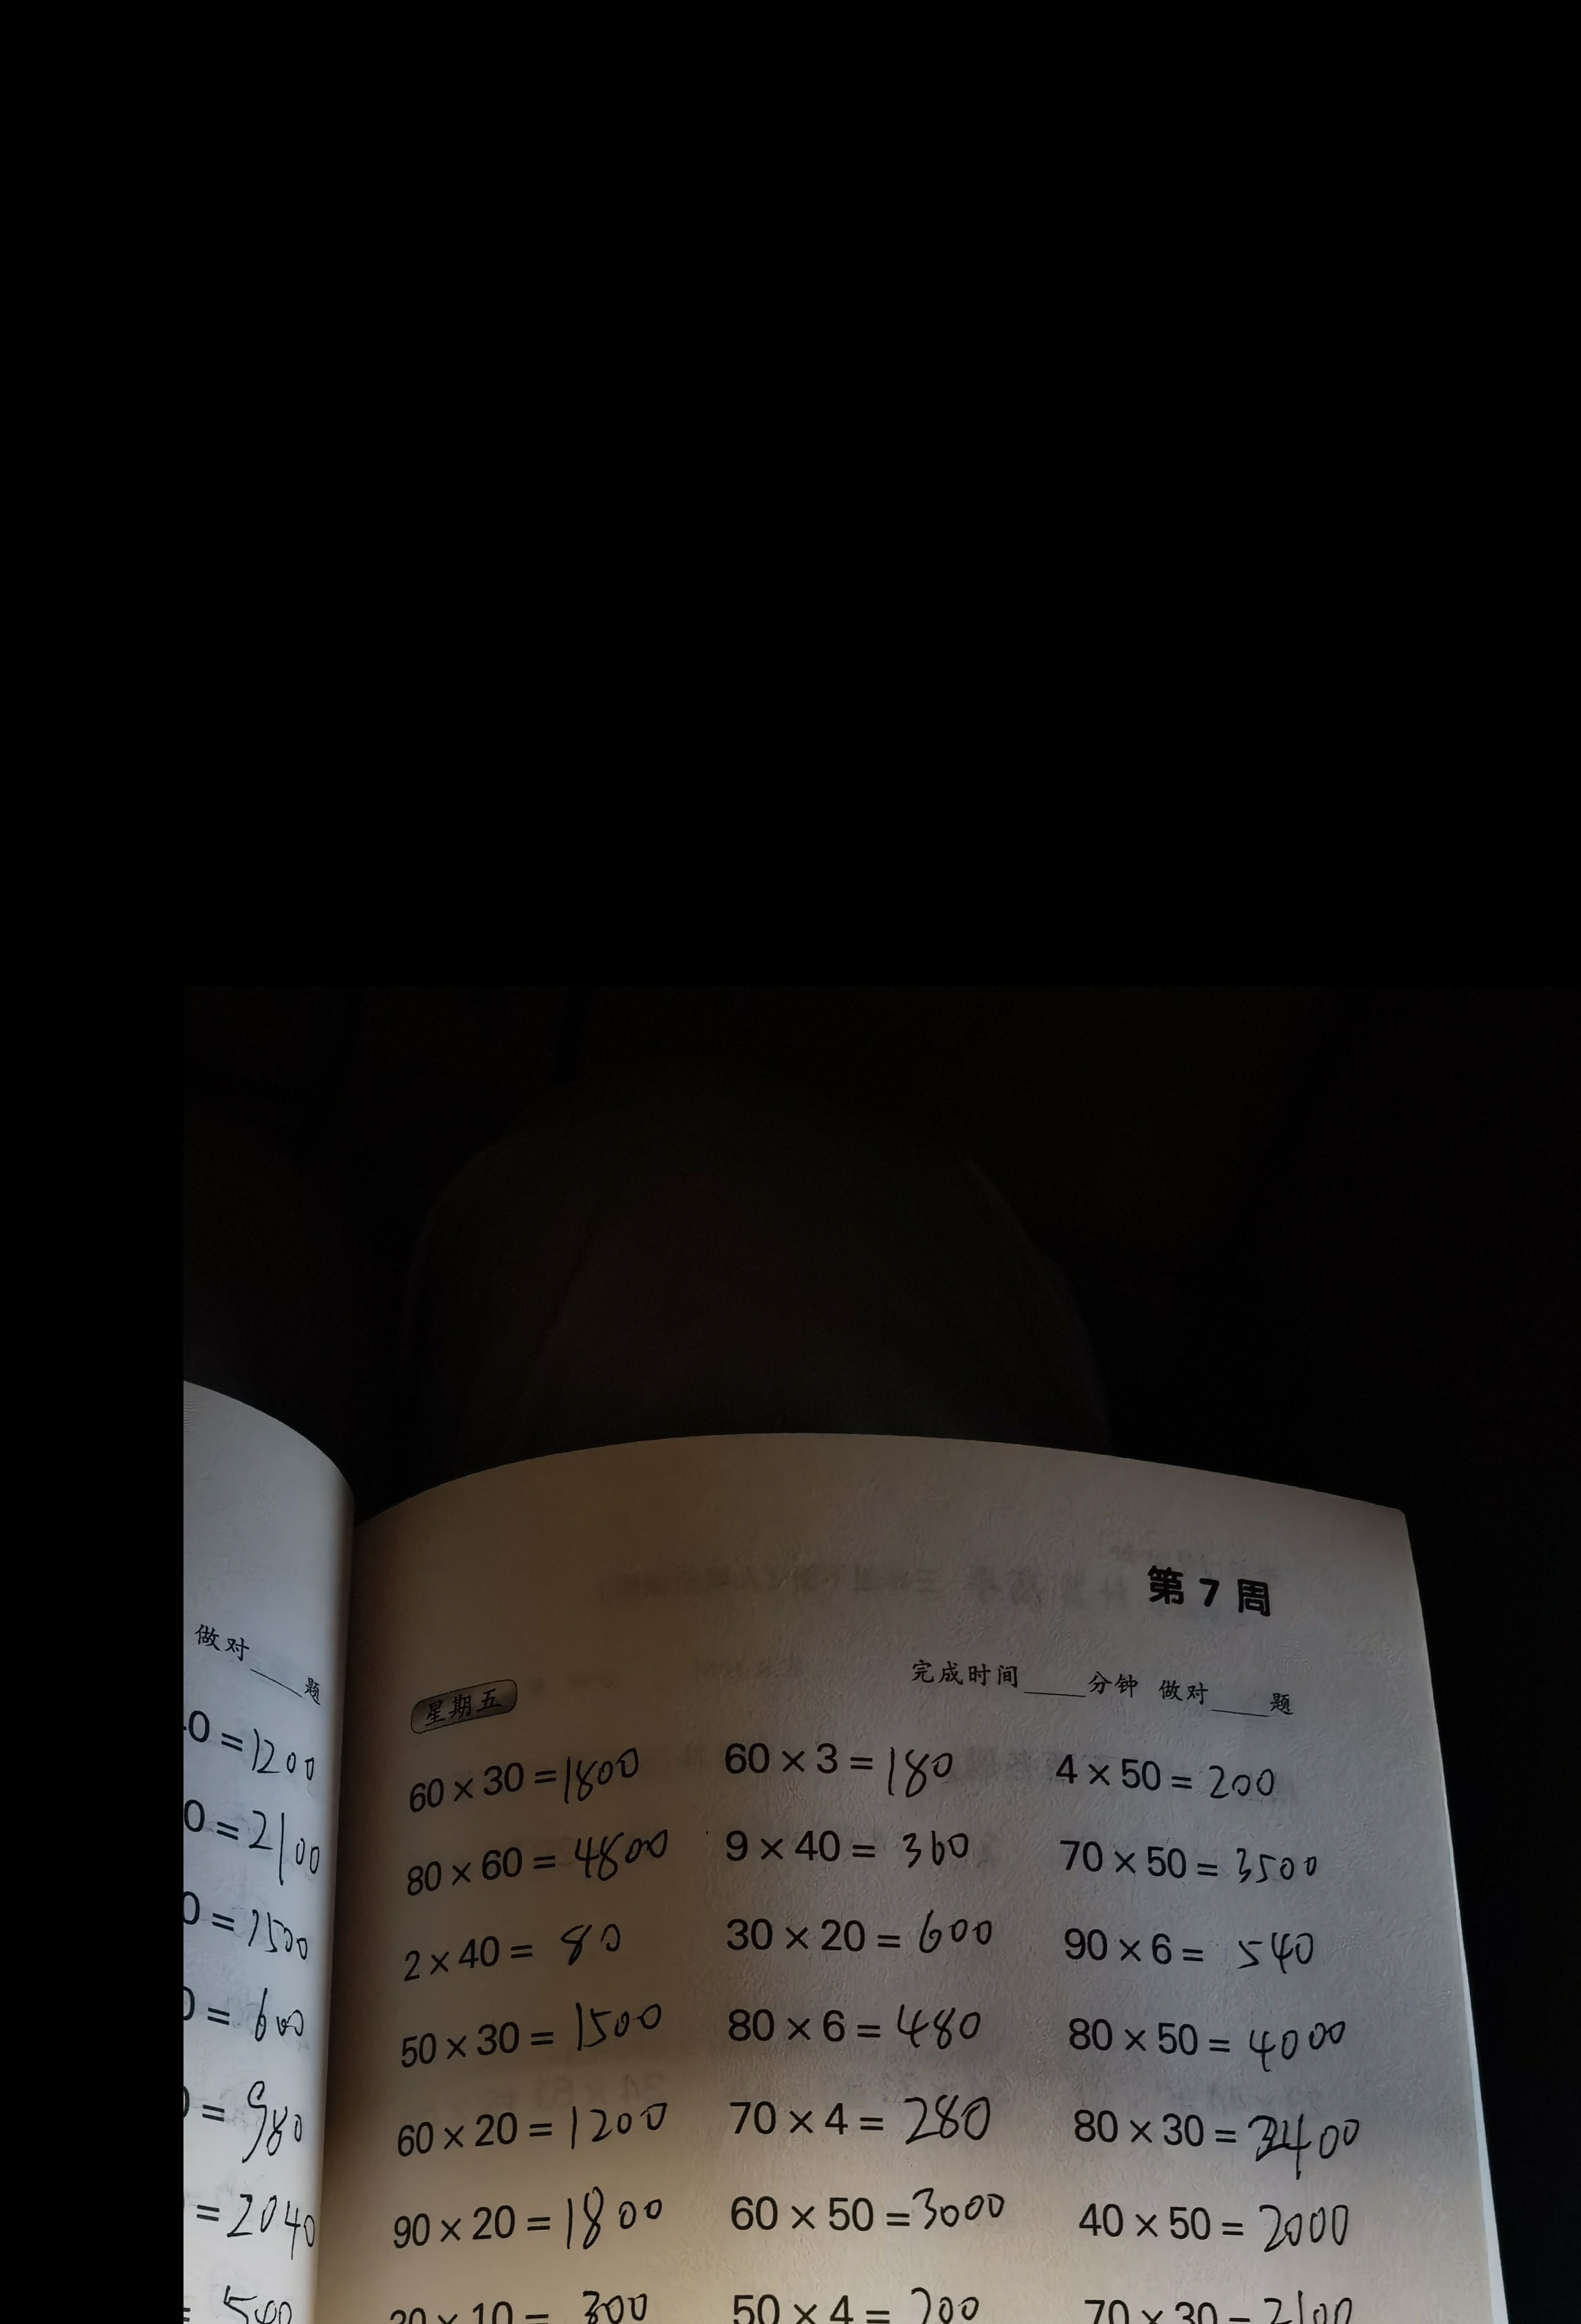 第 7 周
做对____题
星期五 完成时间____分钟 做对____题
0 = 1200
0 = 2100
0 = 1500
0 = 600
= 980
= 2040
540
60 × 30 = 1800 60 × 3 = 180 4 × 50 = 200
80 × 60 = 4800 9 × 40 = 360 70 × 50 = 3500
2 × 40 = 80 30 × 20 = 600 90 × 6 = 540
50 × 30 = 1500 80 × 6 = 480 80 × 50 = 4000
60 × 20 = 1200 70 × 4 = 280 80 × 30 = 2400
90 × 20 = 1800 60 × 50 = 3000 40 × 50 = 2000
× 10 = 300 50 × 4 = 200 70 × 30 = 2100